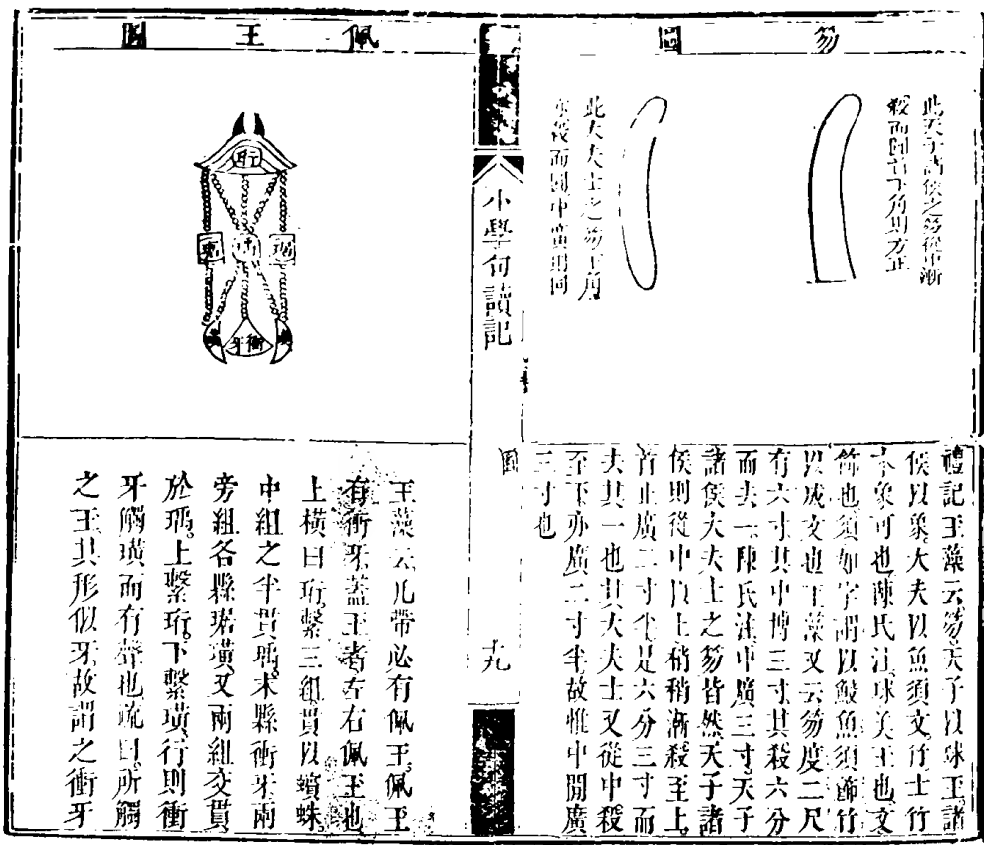 笏圖
此天子諸侯之笏從中漸
殺而圓首下角則方正
此大夫士之笏下角
亦殺而圓中廣則同
禮記王藻云笏天子以球王諸
侯以象大夫以魚須文竹士竹
本象可也陳氏注球美王也文
飾也須如字謂以鮫魚須飾竹
以成文也王藻又云笏度二尺
有六寸其中博三寸其殺六分
而去一陳氏注中廣三寸天子
諸侯大夫士之笏皆然天子諸
侯則從中以上稍稍漸殺至上
首止廣二寸半是六分三寸而
去其一也其大夫士又從中殺
至下亦廣二寸半故惟中間廣
三寸也
小學句讀記
圖
十九
佩王圖
珩
琚
瑀
琚
璜
衝牙
璜
王藻云凡帶必有佩王佩王
有衝牙蓋王者左右佩王也
上橫曰珩繫三組貫以蠙蛛
中組之半貫瑀末縣衝牙兩
旁組各縣琚璜又兩組交貫
於瑀上繫珩下繫璜行則衝
牙觸璜而有聲也疏曰所觸
之王其形似牙故謂之衝牙